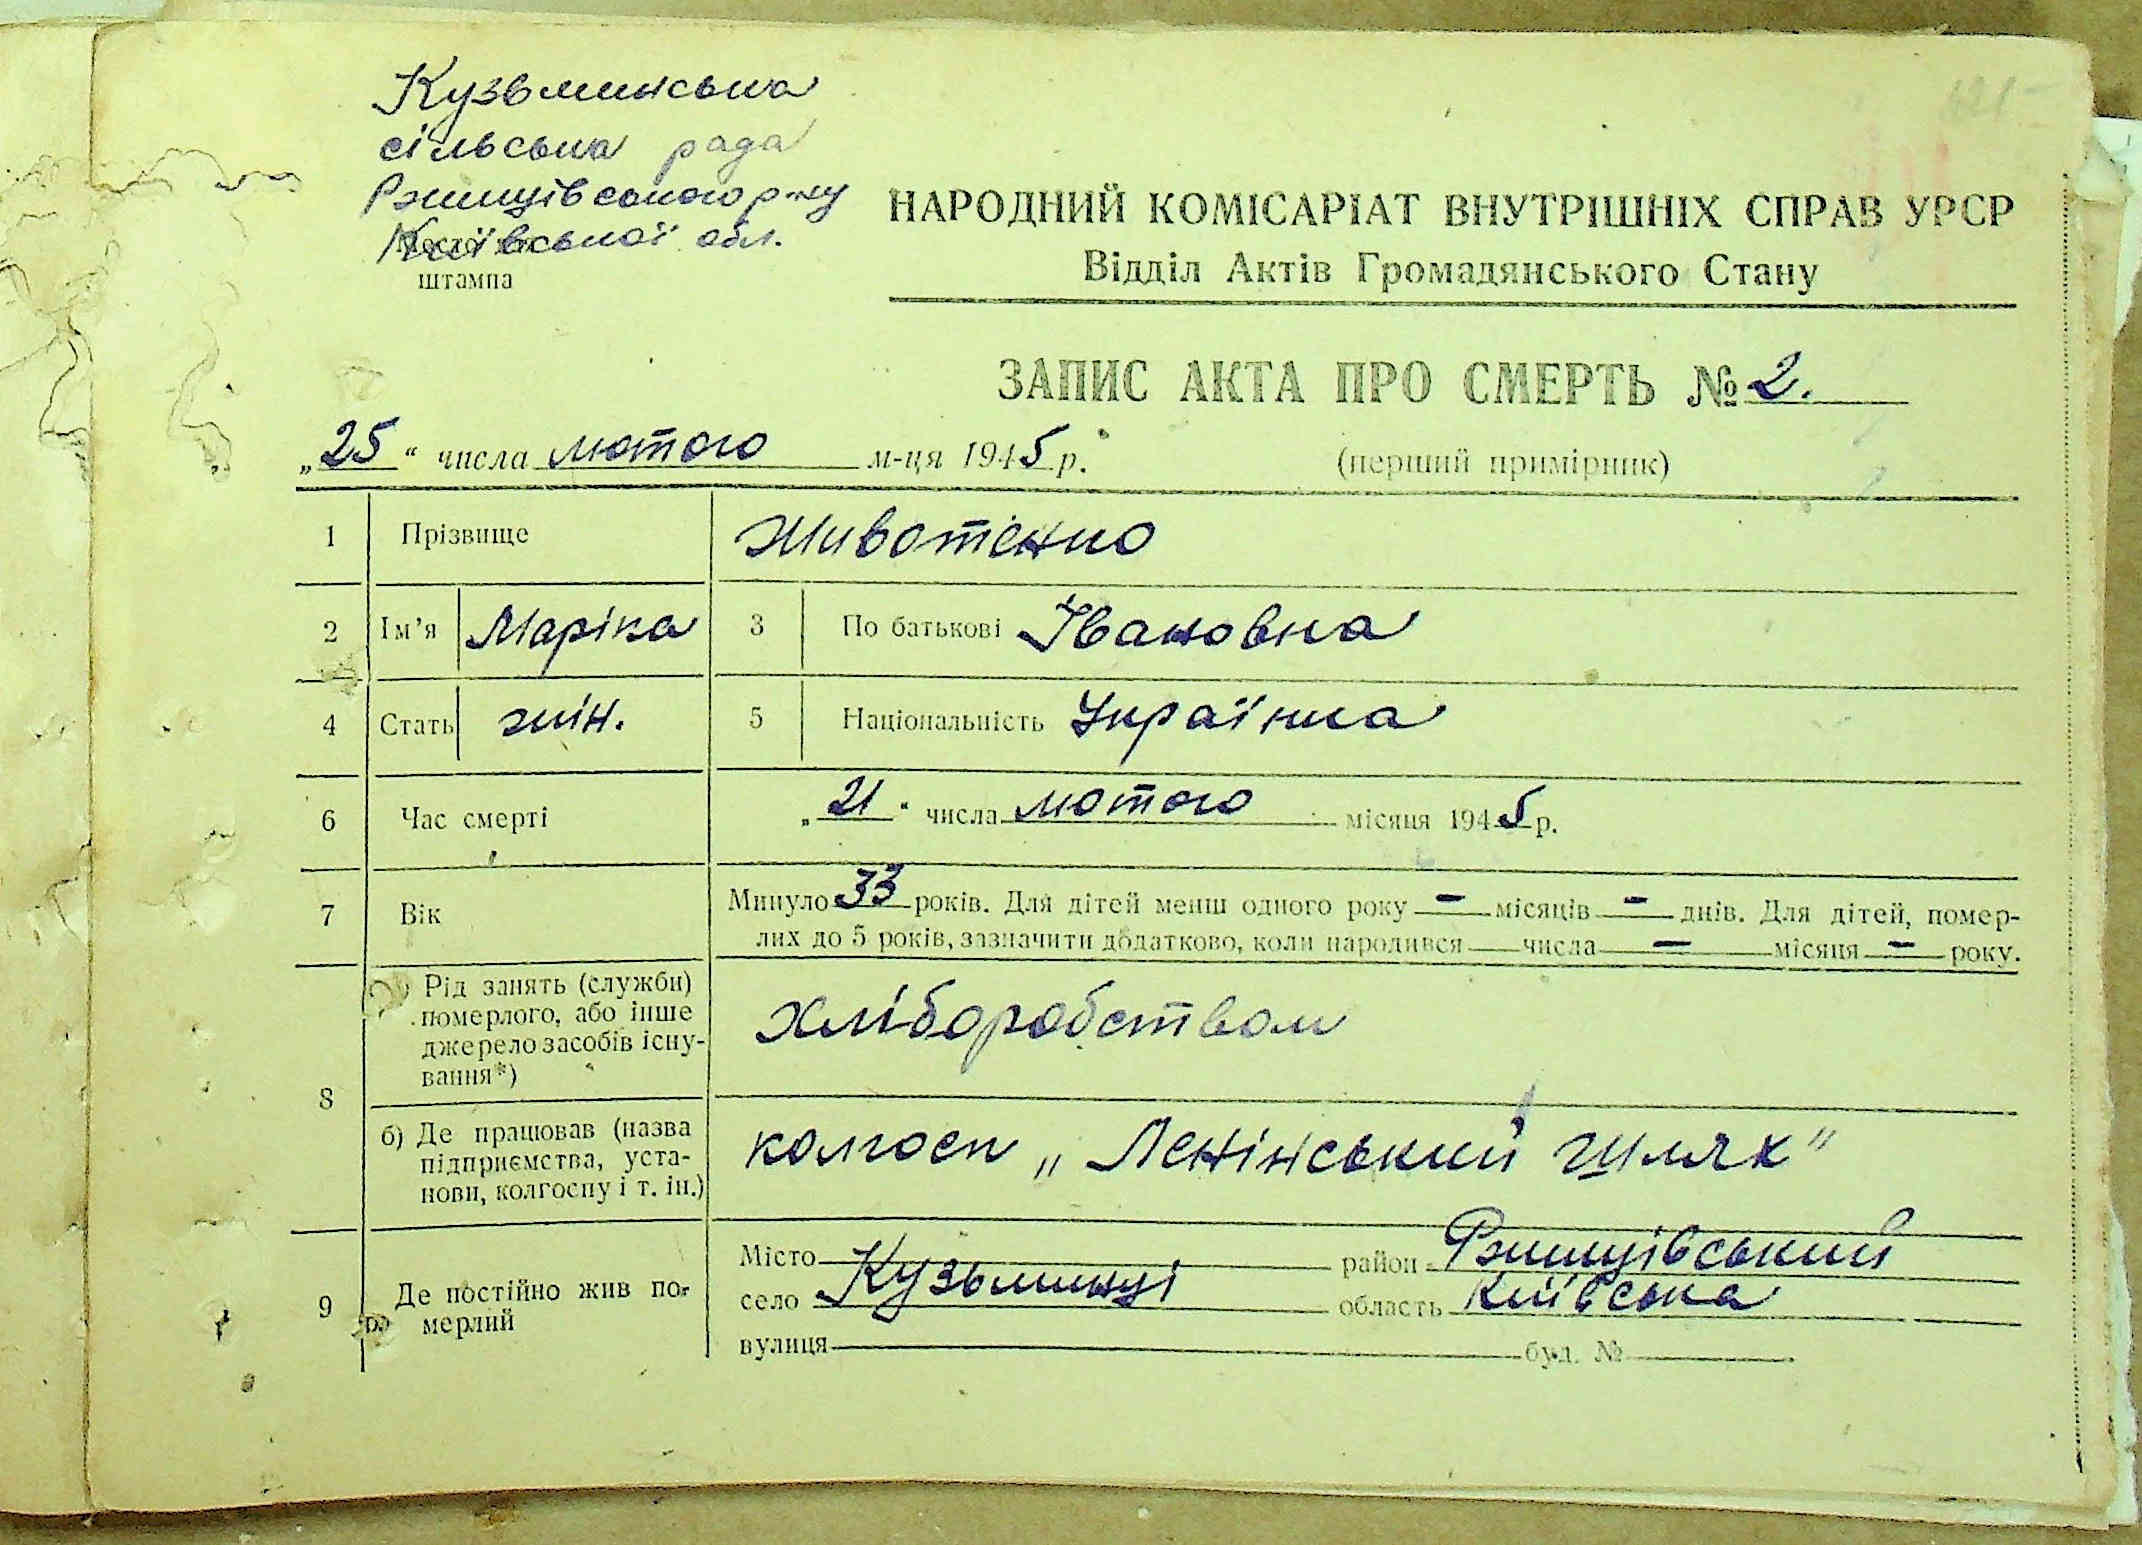 Кузьминська
сільська рада
Ржищівського р-ну
Київської обл.
штампа
НАРОДНИЙ КОМІСАРІАТ ВНУТРІШНІХ СПРАВ УРСР
Відділ Актів Громадянського Стану
ЗАПИС АКТА ПРО СМЕРТЬ № 2.
„25“ числа лютого м-ця 1945 р. (перший примірник)
1 Прізвище Животенко
2 Ім’я Маріка 3 По батькові Івановна
4 Стать жін. 5 Національність Українка
6 Час смерті „21“ числа лютого місяця 1945 р.
7 Вік Минуло 33 років. Для дітей менш одного року — місяців — днів. Для дітей, помер-
лих до 5 років, зазначити додатково, коли народився — числа — місяця — року.
8 Рід занять (служби)
померлого, або інше
джерело засобів існу-
вання*)
хліборобством
б) Де працював (назва
підприємства, уста-
нови, колгоспу і т. ін.)
колгосп „Ленінський шлях”
9 Де постійно жив по-
мерлий
Місто район Ржищівський
село Кузьминці область Київська
вулиця буд. №